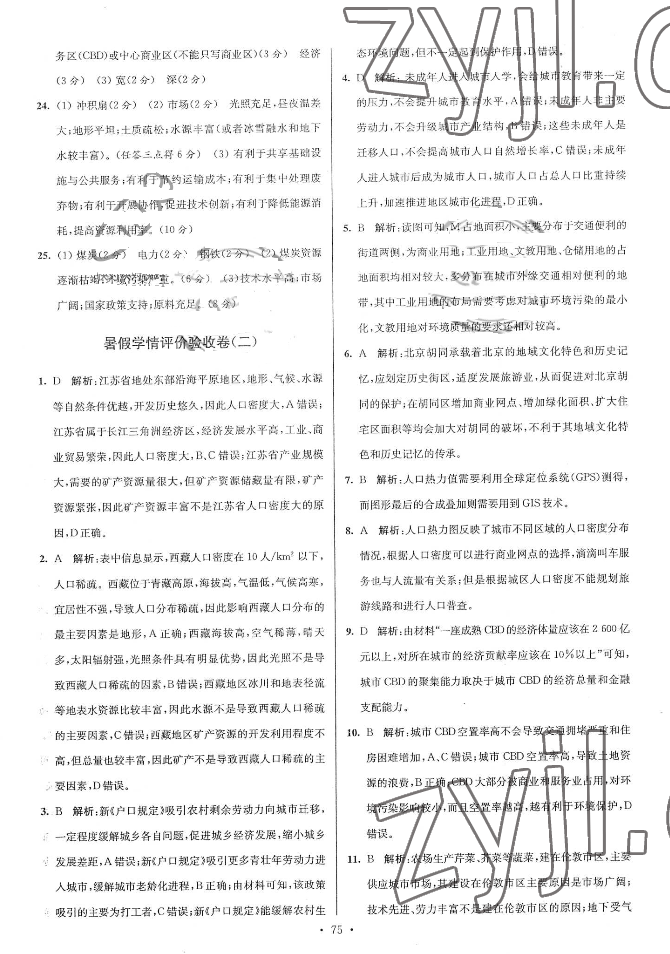 务区(CBD)或中心商业区(不能只写商业区)(3分) 经济
(3分) (3)宽(2分) 深(2分)
24. (1)冲积扇(2分) (2)市场(2分) 光照充足,昼夜温差
大;地形平坦;土质疏松;水源丰富(或者冰雪融水和地下
水较丰富)。(任答三点得6分) (3)有利于共享基础设
施与公共服务;有利于节约运输成本;有利于集中处理废
弃物;有利于开展协作,促进技术创新;有利于降低能源消
耗,提高资源利用率。(10分)
25. (1)煤炭(2分) 电力(2分) 钢铁(2分) (2)煤炭资源
逐渐枯竭 (6分) (3)技术水平高;市场
广阔;国家政策支持;原料充足。(8分)
暑假学情评价验收卷(二)
1. D 解析:江苏省地处东部沿海平原地区,地形、气候、水源
等自然条件优越,开发历史悠久,因此人口密度大,A错误;
江苏省属于长江三角洲经济区,经济发展水平高,工业、商
业贸易繁荣,因此人口密度大,B、C错误;江苏省产业规模
大,需要的矿产资源量很大,但矿产资源储藏量有限,矿产
资源紧张,因此矿产资源丰富不是江苏省人口密度大的原
因,D正确。
2. A 解析:表中信息显示,西藏人口密度在10人/km²以下,
人口稀疏。西藏位于青藏高原,海拔高,气温低,气候高寒,
宜居性不强,导致人口分布稀疏,因此影响西藏人口分布的
最主要因素是地形,A正确;西藏海拔高,空气稀薄,晴天
多,太阳辐射强,光照条件具有明显优势,因此光照不是导
致西藏人口稀疏的因素,B错误;西藏地区冰川和地表径流
等地表水资源比较丰富,因此水源不是导致西藏人口稀疏
的主要因素,C错误;西藏地区矿产资源的开发利用程度不
高,但总量也较丰富,因此矿产不是导致西藏人口稀疏的主
要因素,D错误。
3. B 解析:新《户口规定》吸引农村剩余劳动力向城市迁移,
一定程度缓解城乡各自问题,促进城乡经济发展,缩小城乡
发展差距,A错误;新《户口规定》吸引更多青壮年劳动力进
入城市,缓解城市老龄化进程,B正确;由材料可知,该政策
吸引的主要为打工者,C错误;新《户口规定》能缓解农村生
态环境问题,但不一定起到保护作用,D错误。
4. D 解析:未成年人进入城市人学,会给城市教育带来一定
的压力,不会提升城市教育水平,A错误;未成年人不是主要
劳动力,不会升级城市产业结构,B错误;这些未成年人是
迁移人口,不会提高城市人口自然增长率,C错误;未成年
人进入城市后成为城市人口,城市人口占总人口比重持续
上升,加速推进地区城市化进程,D正确。
5. B 解析:读图可知,M占地面积小,主要分布于交通便利的
街道两侧,为商业用地;工业用地、文教用地、仓储用地的占
地面积均相对较大,多分布在城市外缘交通相对便利的地
带,其中工业用地的布局需要考虑对城市环境污染的最小
化,文教用地对环境质量的要求还相对较高。
6. A 解析:北京胡同承载着北京的地域文化特色和历史记
忆,应划定历史街区,适度发展旅游业,从而促进对北京胡
同的保护;在胡同区增加商业网点、增加绿化面积、扩大住
宅区面积等均会加大胡同的破坏,不利于其地域文化特
色和历史记忆的传承。
7. B 解析:人口热力值需要利用全球定位系统(GPS)测得,
而图形最后的合成叠加则需要用到GIS技术。
8. A 解析:人口热力图反映了城市不同区域的人口密度分布
情况,根据人口密度可以进行商业网点的选择,滴滴叫车服
务也与人流量有关系;但是根据城区人口密度不能规划旅
游线路和进行人口普查。
9. D 解析:由材料“一座成熟CBD的经济体量应该在2 600亿
元以上,对所在城市的经济贡献率应该在10%以上”可知,
城市CBD的聚集能力取决于城市CBD的经济总量和金融
支配能力。
10. B 解析:城市CBD空置率高不会导致交通拥堵严重和住
房困难增加,A、C错误;城市CBD空置率高,导致土地资
源的浪费,B正确;CBD大部分被商业和服务业占用,对环
境污染影响较小,而且空置率越高,越有利于环境保护,D
错误。
11. B 解析:农场生产芹菜、芥菜等蔬菜,建在伦敦市区,主要
供应城市市场,其建设在伦敦市区主要原因是市场广阔;
技术先进、劳力丰富不是建在伦敦市区的原因;地下受气
• 75 •
zyjl.c
zyjl.c